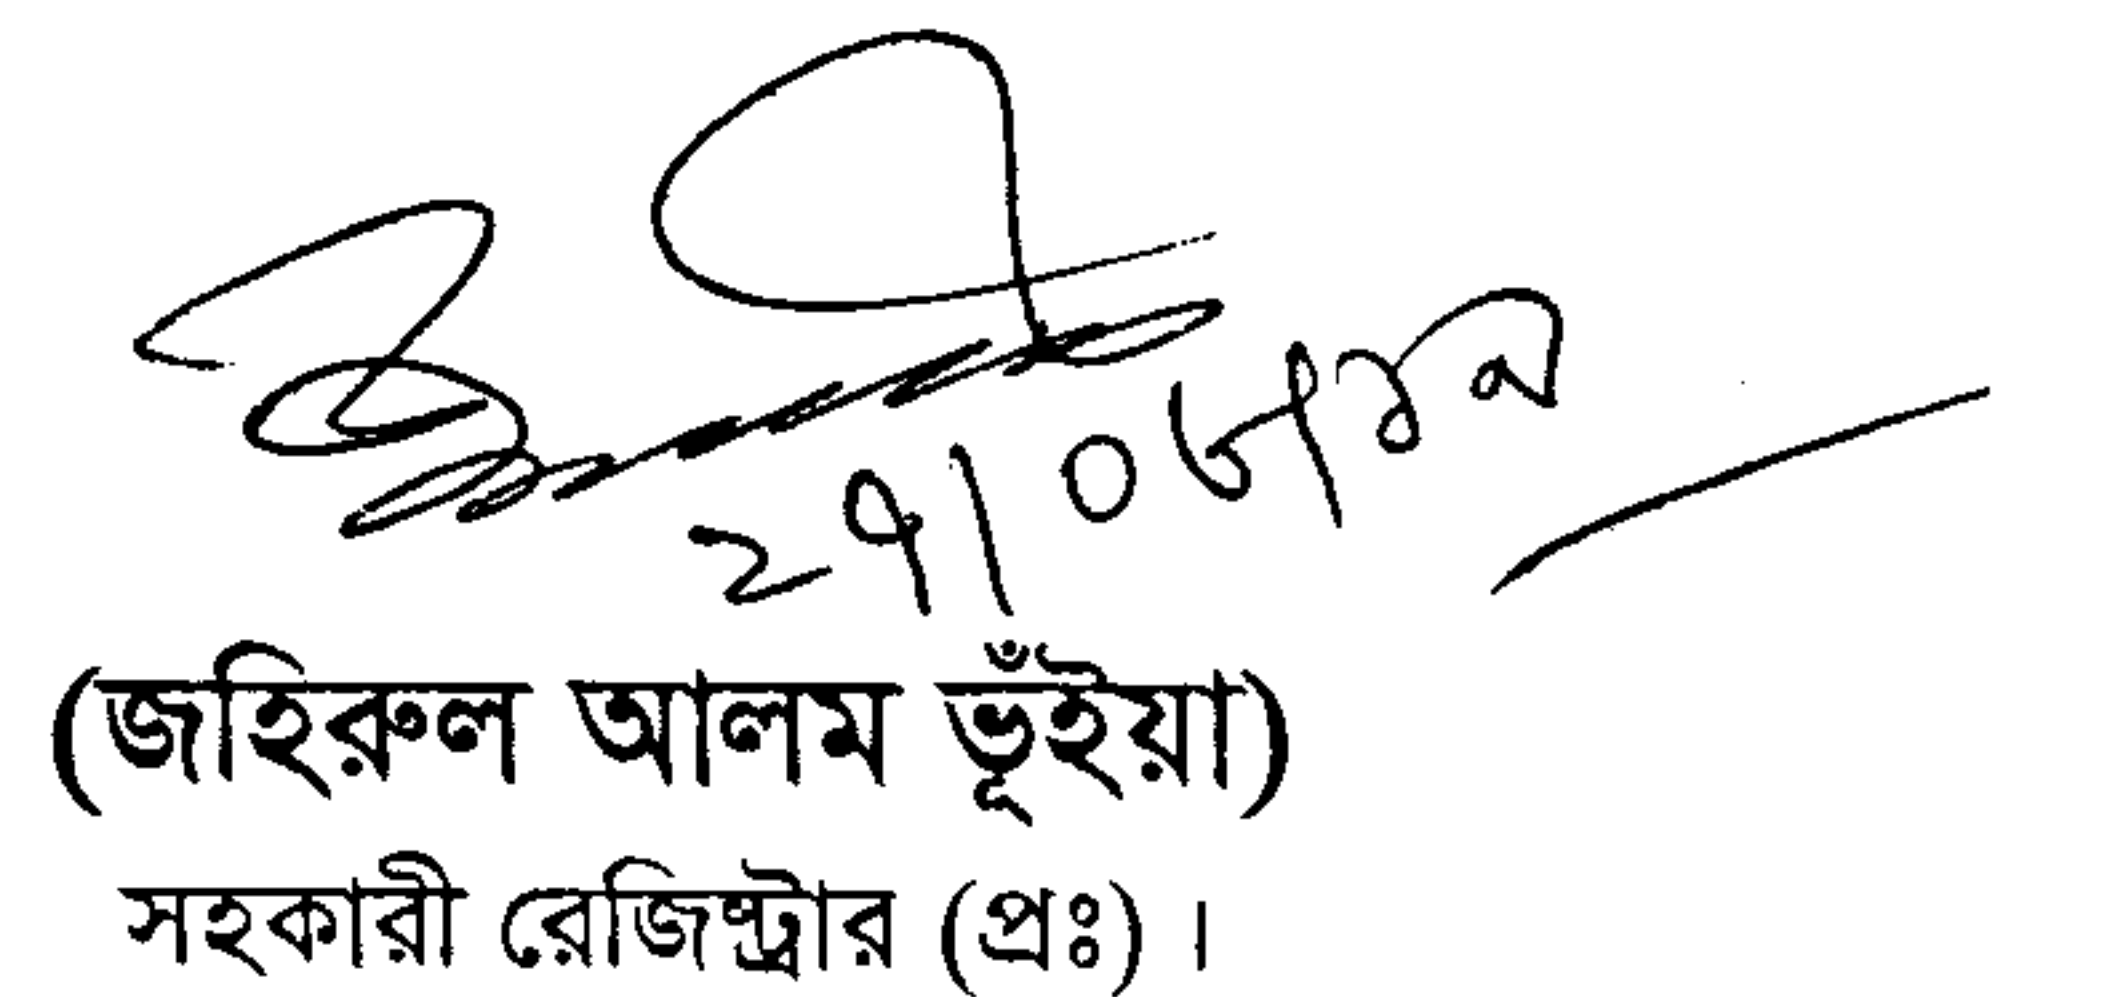 ২৭।০৬।২২
(জহিরুল আলম ভূঁইয়া)
সহকারী রেজিষ্ট্রার (প্রঃ) ।